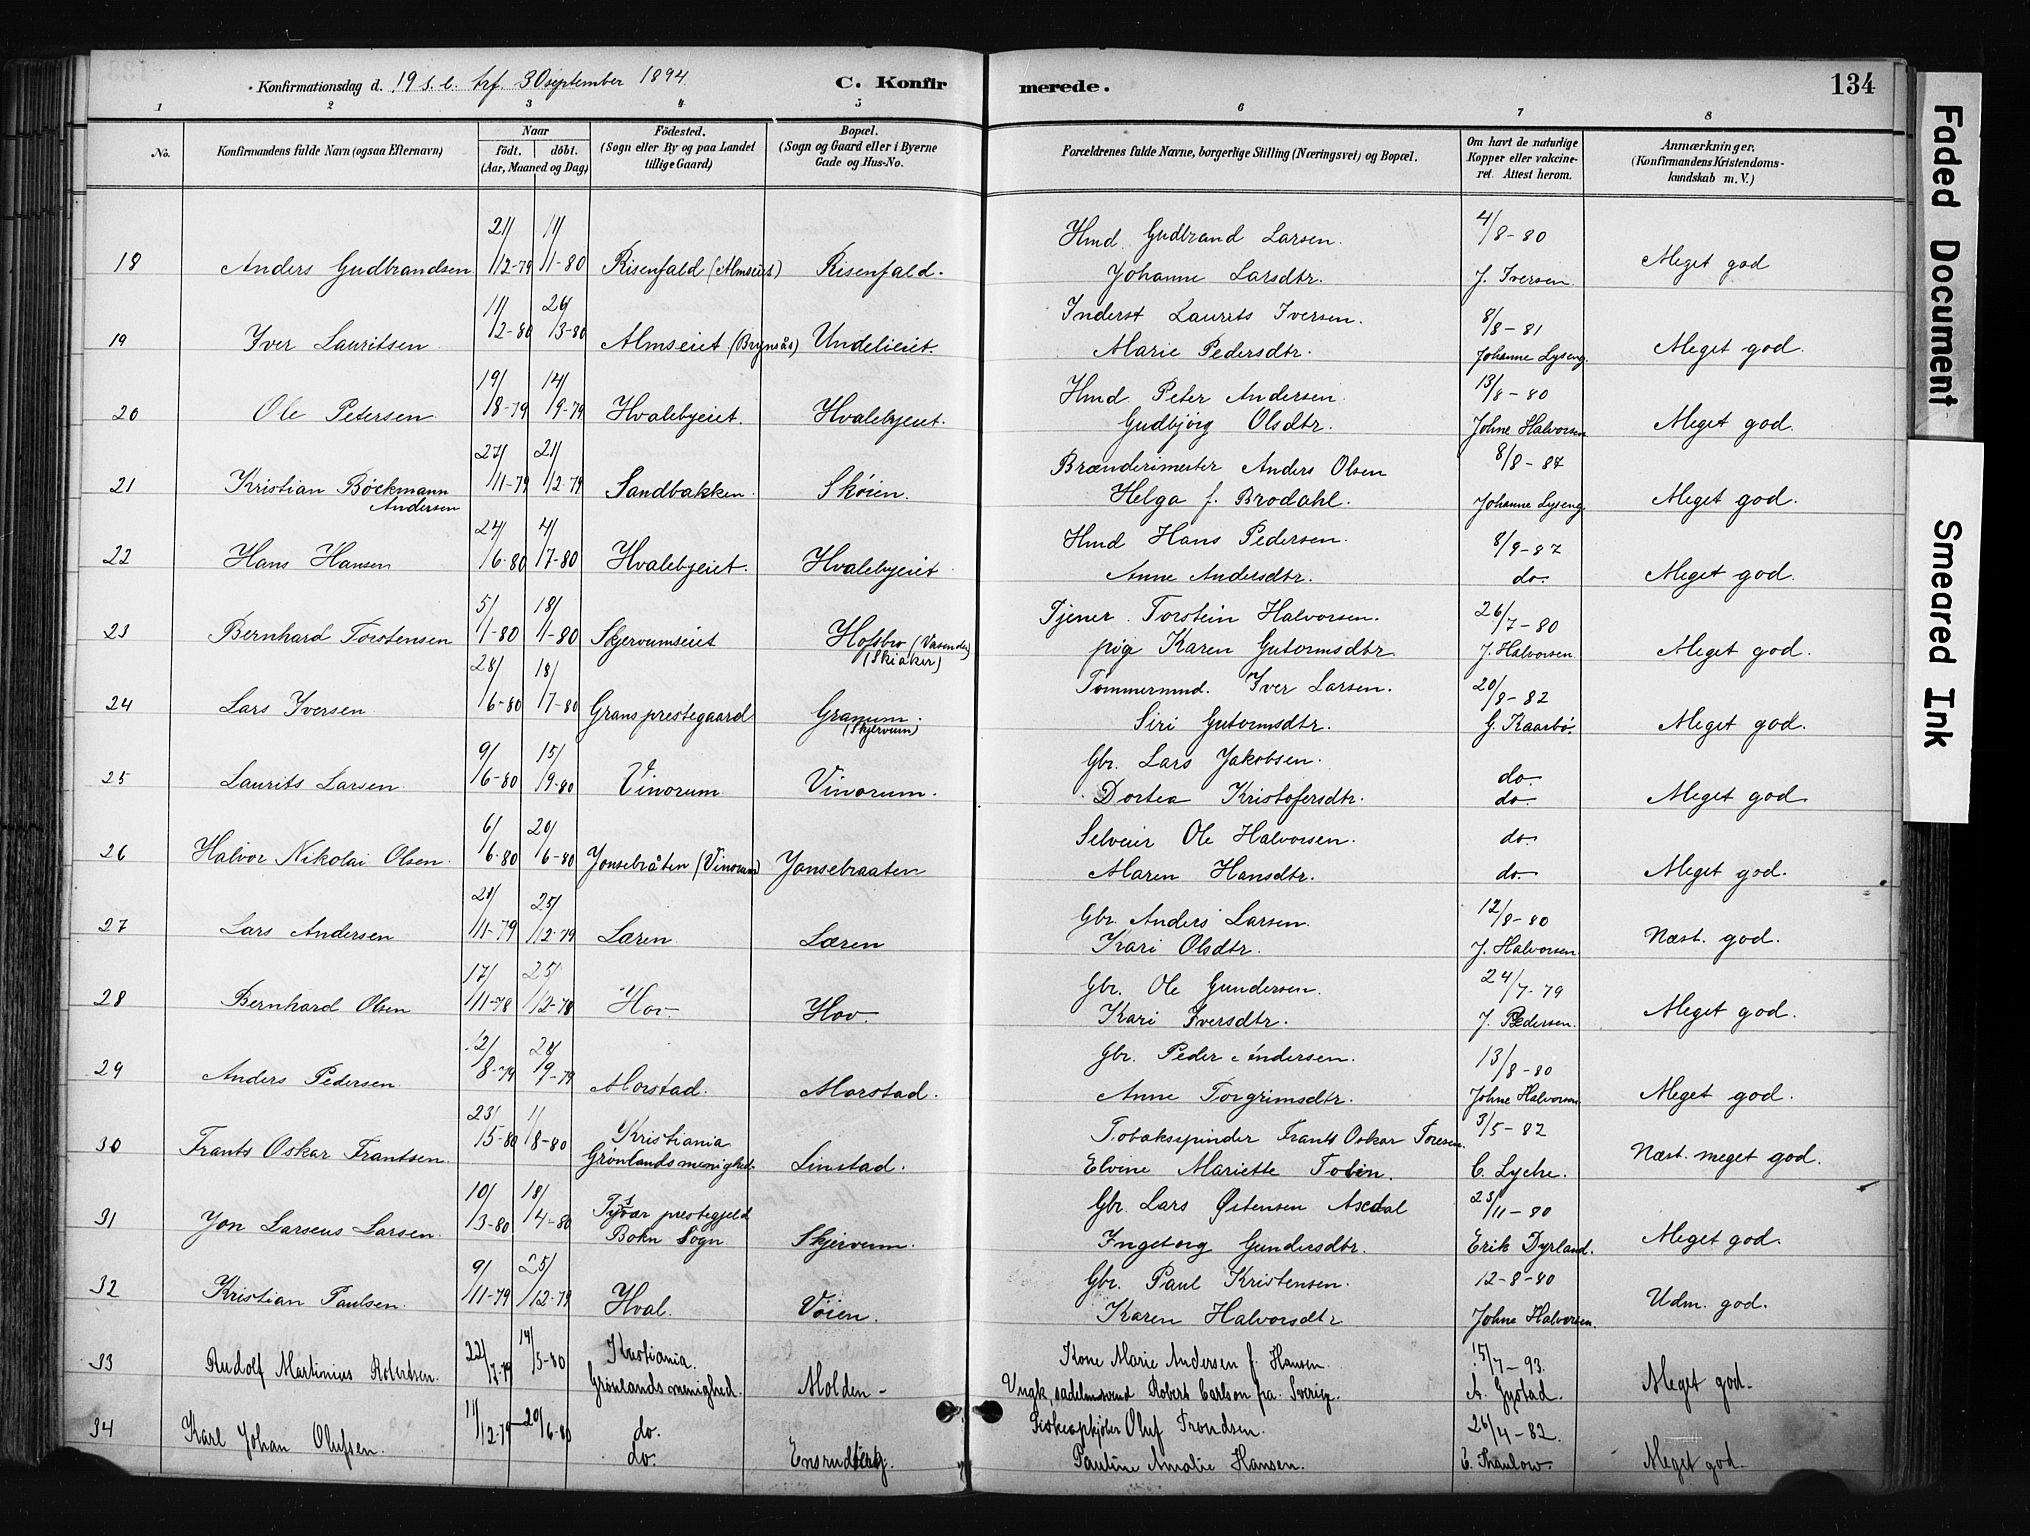 Konfirmationsdag d. 19 s. e. trf. 30 september 1894. C. Konfirmerede. 134
1 2 3 4 5 6 7 8
No. Konfirmandens fulde Navn (ogsaa Efternavn) Naar født. døbt. (Aar, Maaned og Dag) Fødested. (Sogn eller By og paa Landet tillige Gaard) Bopæl. (Sogn og Gaard eller i Byerne Gade og Hus-No. Forældrenes fulde Navne, borgerlige Stilling (Næringsvei) og Bopæl. Om havt de naturlige Kopper eller vakcineret. Attest herom. Anmærkninger. (Konfirmandens Kristendomskundskab m. V.)
18 Anders Gudbrandsen 21/12-79 11/1-80 Risenfald (Almseiet) Risenfald. Hmd. Gudbrand Larsen. 4/8-80 Meget god
Johanne Larsdtr. J. Iversen.
19 Iver Lauritsen 11/2-80 26/3-80 Almseiet (Brynsås) Undelieiet. Inderst Laurits Iversen. 8/8-81 Meget god.
Marie Pedersdtr. Johanne Lyseng.
20 Ole Petersen 19/8-79 14/9-79 Hvalebyeiet. Hvalebyeiet. Hmd. Peter Andersen. 13/8-80 Meget god.
Gudbjørg Olsdtr. Johne Halvorsen
21 Kristian Böckmann Andersen 27/11-79 21/12-79 Sandbakken. Skøien. Brænderimester Anders Olsen 8/8-87 Meget god.
Helga f. Brodahl. Johanne Lyseng
22 Hans Hansen 24/6-80 4/7-80 Hvalebyeiet. Hvalebyeiet Hmd Hans Pedersen. 8/9-87 Meget god.
Anne Andersdtr. do.
23 Bernhard Torstensen 5/1-80 18/1-80 Skjervumseiet Hofsbro (Vasenden) (Skiaker) Tjener. Torstein Halvorsen. 26/7-80 Meget god.
pige Karen Gutormsdtr J. Halvorsen
24 Lars Iversen 28/6-80 18/7-80 Grans prestegaard Granum. (Skjervum) Tømmermnd. Iver Larsen. 20/8-82 Meget god.
Siri Gutormsdtr. G. Kaarbø.
25 Laurits Larsen 9/6-80 15/9-80 Vinorum Vinorum. Gbr. Lars Jakobsen. do. Meget god
Dortea Kristofersdtr. do
26 Halvor Nikolai Olsen. 6/6-80 20/6-80 Jonsebråten (Vinorum) Jonsebraaten Selveier Ole Halvorsen. do. Meget god.
Maren Hansdtr. do.
27 Lars Andersen 21/11-79 25/12-79 Læren Læren Gbr. Anders Larsen. 12/8-80 Næst. god.
Kari Olsdtr. J. Halvorsen
28 Bernhard Olsen 17/11-78 25/12-78 Hov Hov. Gbr. Ole Gundersen. 24/7-79 Meget god.
Kari Iversdtr. J. Pedersen.
29 Anders Pedersen. 2/8-79 28/9-79 Morstad. Morstad. Gbr. Peder Andersen. 13/8-80 Meget god.
Anne Torgrimsdtr. Johne Halvorsen
30 Frants Oskar Frantsen. 23/5-80 1/8-80 Kristiania Grønlands menighed. Linstad. Tobakspinder Frants Oskar 3/5-82 Næst. meget god.
Elvine Mariette C. Lyche.
31 Jon Larseus Larsen. 10/3-80 18/4-80 Tysvær prestegjeld Bokn Sogn Skjervum. Gbr. Lars Østensen Axdal 23/11-80 Meget god.
Ingeborg Gundersdtr. Erik Dyrland.
32 Kristian Paulsen. 9/11-79 25/12-79 Hval. Vøien. Gbr. Paul Kristensen. 12-8-80 Udm. god.
Karen Halvorsdtr Johne Halvorsen.
33 Rudolf Martinius Robertsen. 22/7-79 14/3-80 Kristiania. Grønlands menighed. Molden Kone Marie Andersen f. Hansen. 15/7-93. Meget god.
Ungk. sadelmsvend Robert Carlson fra Sverig. A. Gystad.
34 Karl Johan Olufsen. 11/12-79 20/6-80 do. do. Ensrudberg. Oluf Trondsen. 26/4-82. Meget god.
Pauline Amalie Hansen. E. Thaulow.
Faded Document
Smeared Ink